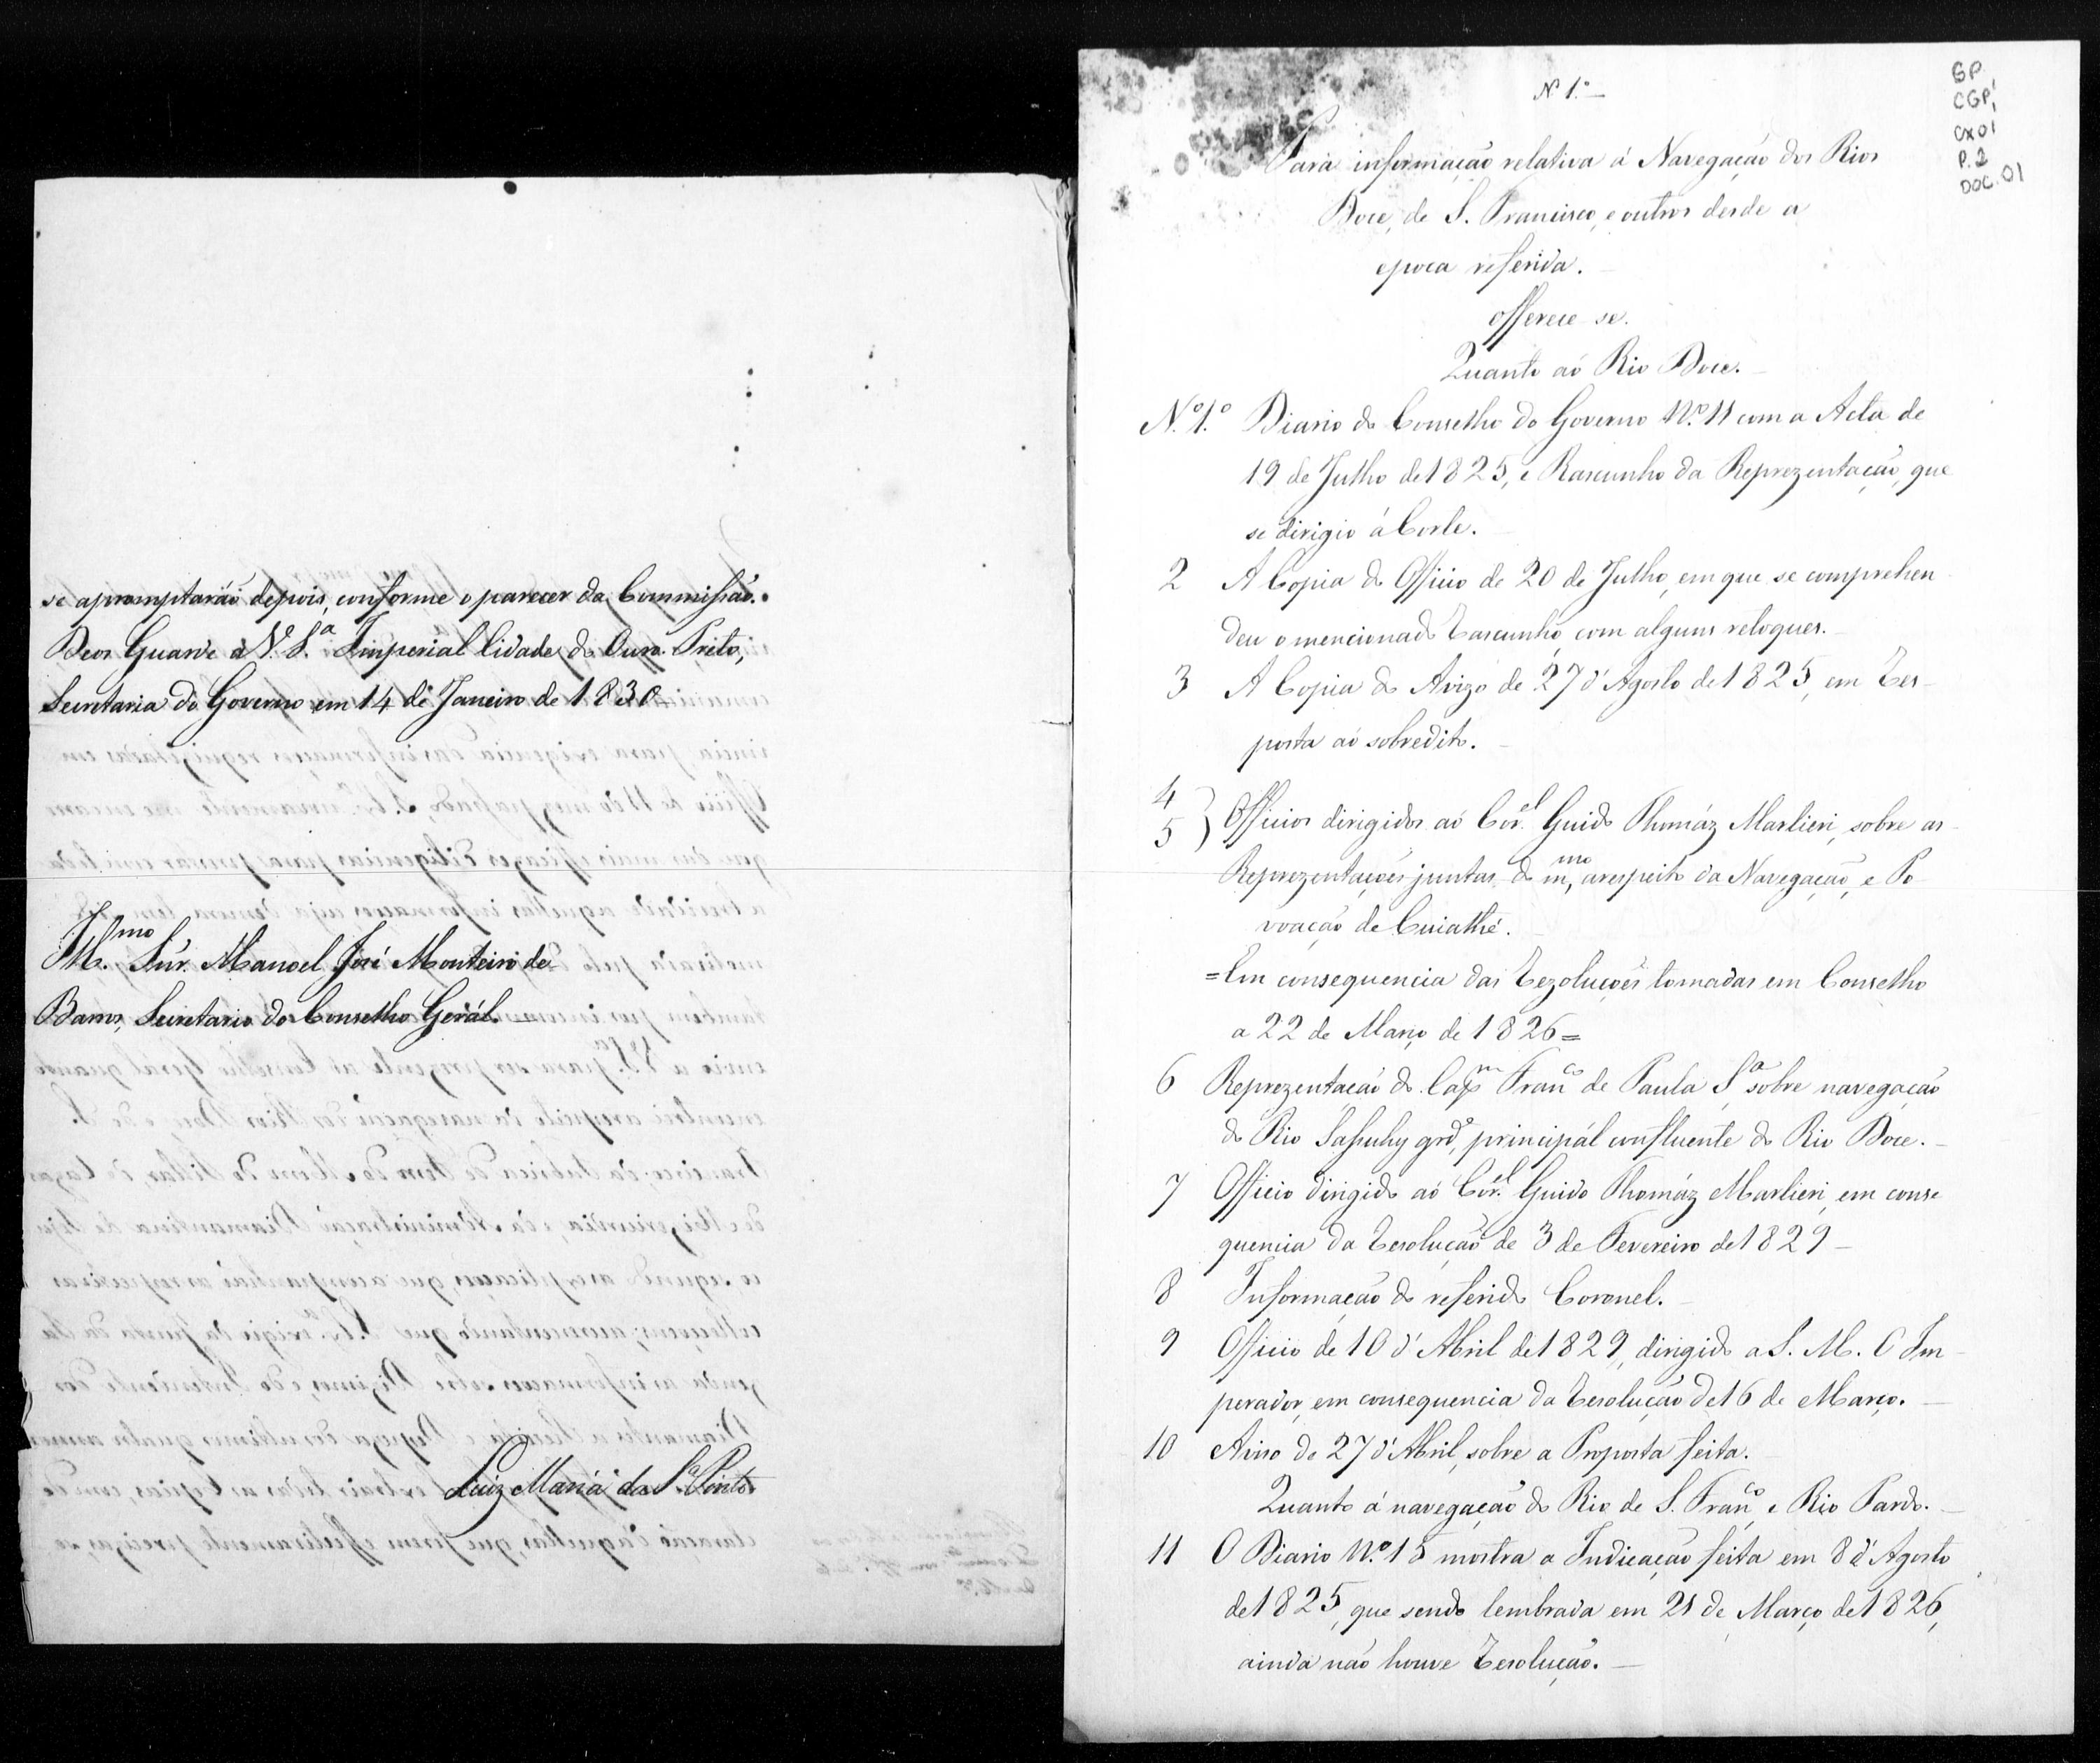 se apromptaráõ depois, conforme o parecer da Commissaõ.
Deos Guarde a V. S.ª Imperial Cidade do Ouro Preto,
Secretaria do Governo em 14 de Janeiro de 1830
Ill.mo Snr. Manoel José Monteiro de
Barros, Secretario do Conselho Gerál.
Luiz Maria da S.ª Pinto
Nº 1.º
GP
CGP1
CX01
P.2
DOC. 01
Para informaçaõ relativa á Navegaçaõ dos Rios
Doce, de S. Francisco, e outros desde a
epoca referida.
offerece-se.
Quanto aó Rio Doce.
N.º 1.º Diario do Conselho do Governo N.º 11 com a Acta de
19 de Julho de 1825, e Rascunho da Reprezentaçaõ, que
se dirigio á Corte.
2 A Copia do Officio de 20 de Julho, em que se comprehen
deu o mencionado Rascunho, com alguns retoques.
3 A Copia do Avizo de 27 d'Agosto de 1825, em Res-
posta aó sobredito.
4
5 } Officios dirigidos aó Cor.el Guido Thomáz Marlieri, sobre as
Reprezentaçoẽs juntas do m.mo, arespeito da Navegaçaõ, e Po
voaçaõ de Cuiathé.
= Em consequencia das Rezoluçoẽs tomadas em Conselho
a 22 de Março de 1826 =
6 Reprezentaçaõ do Cap.m Fran.co de Paula S.ª sobre navegaçaõ
do Rio Sassuhy gr.de, principál confluente do Rio Doce.
7 Officio dirigido aó Cor.el Guido Thomáz Marlieri, em conse
quencia da Resoluçaõ de 3 de Fevereiro de 1829
8 Informaçaõ do referido Coronel.
9 Officio de 10 d'Abril de 1829, dirigido a S. M. O Im
perador, em consequencia da Resoluçaõ de 16 de Março.
10 Aviso de 27 d'Abril, sobre a Proposta feita.
Quanto á navegaçaõ do Rio de S. Fran.co, e Rio Pardo.
11 O Diario N.º 15 mostra a Indicaçaõ feita em 8 d'Agosto
de 1825, que sendo lembrada em 21 de Março de 1826,
ainda naõ houve Resoluçaõ.